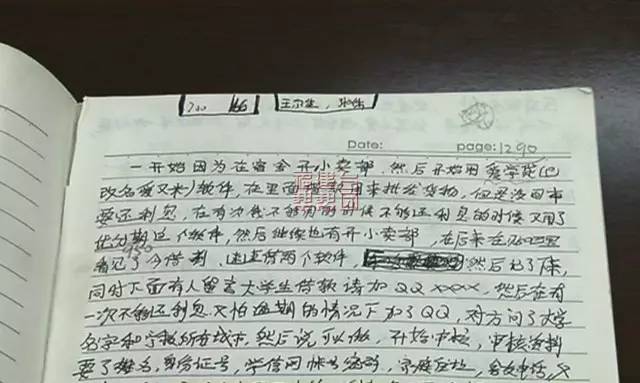 700 166 王尔佳,
Date: page: 1290
一开始因为在宿舍开小卖部,然后开始用爱学贷(已
改名爱又米)软件,在里面借款用来批发货物,但是没回本
要还利息,在有次钱不够还的时候不够还利息的时候又用了
优分期这个软件,然后继续也有开小卖部,在后来在贴吧里
看见了今借到、速速借两个软件, 然后记了下来,
同时下面有人留言大学生借款请加QQ xxxx,然后在有
一次不够还利息又怕逾期的情况下加了QQ,对方问了大学
名字和学校所在城市,然后说可以做,开始审核,审核资料
要了姓名,身份证号,学信网帐号密码,家庭住址,亲友电话,